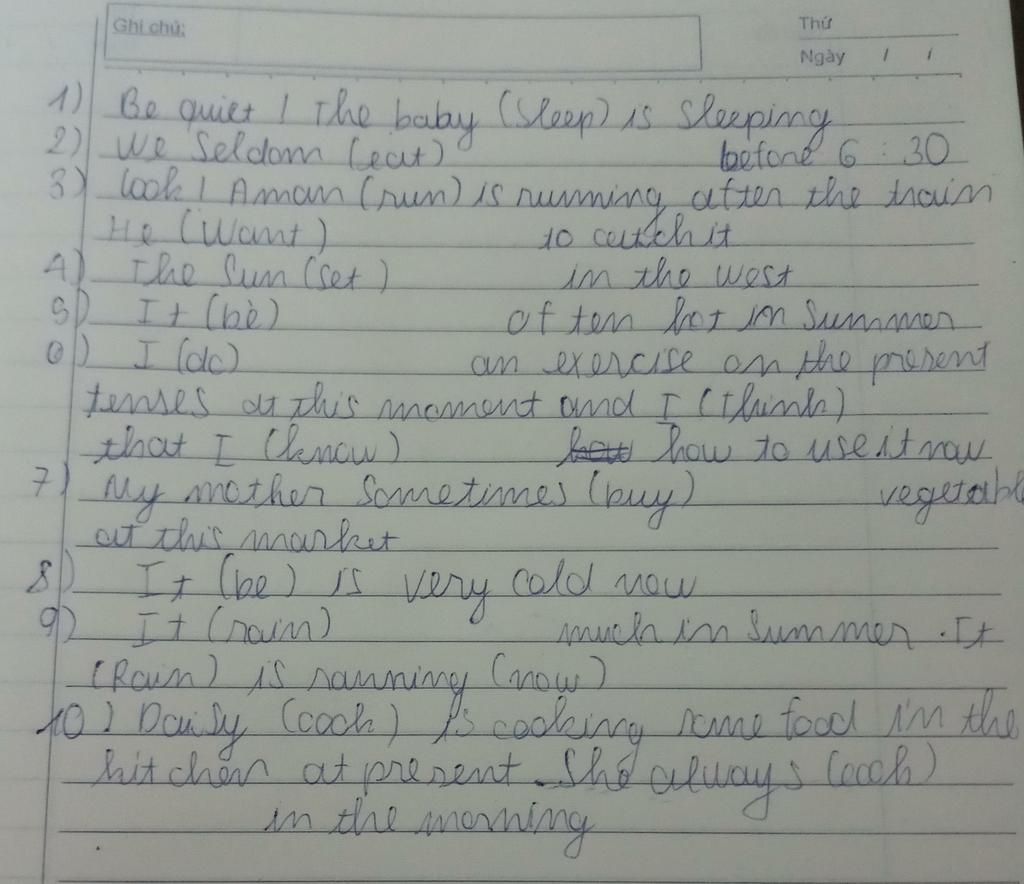 Ghi chú:
Thứ
Ngày / /
1) Be quiet ! The baby (Sleep) is Sleeping
2) We Seldom (eat) before 6 : 30
3) Look ! A man (run) is running after the train
He (Want) to catch it
4) The Sun (Set) in the west
5) It (be) often hot in Summer
6) I (do) an exercise on the present
tenses at this moment and I (think)
that I (know) how to use it now
7) My mother Sometimes (buy) vegetabl
at this market
8) It (be) is very cold now
9) It (rain) much in Summer . It
(Rain) is ranning (now)
10) Daisy (cook) is cooking some food in the
kitchen at present . She always (cook)
in the morning